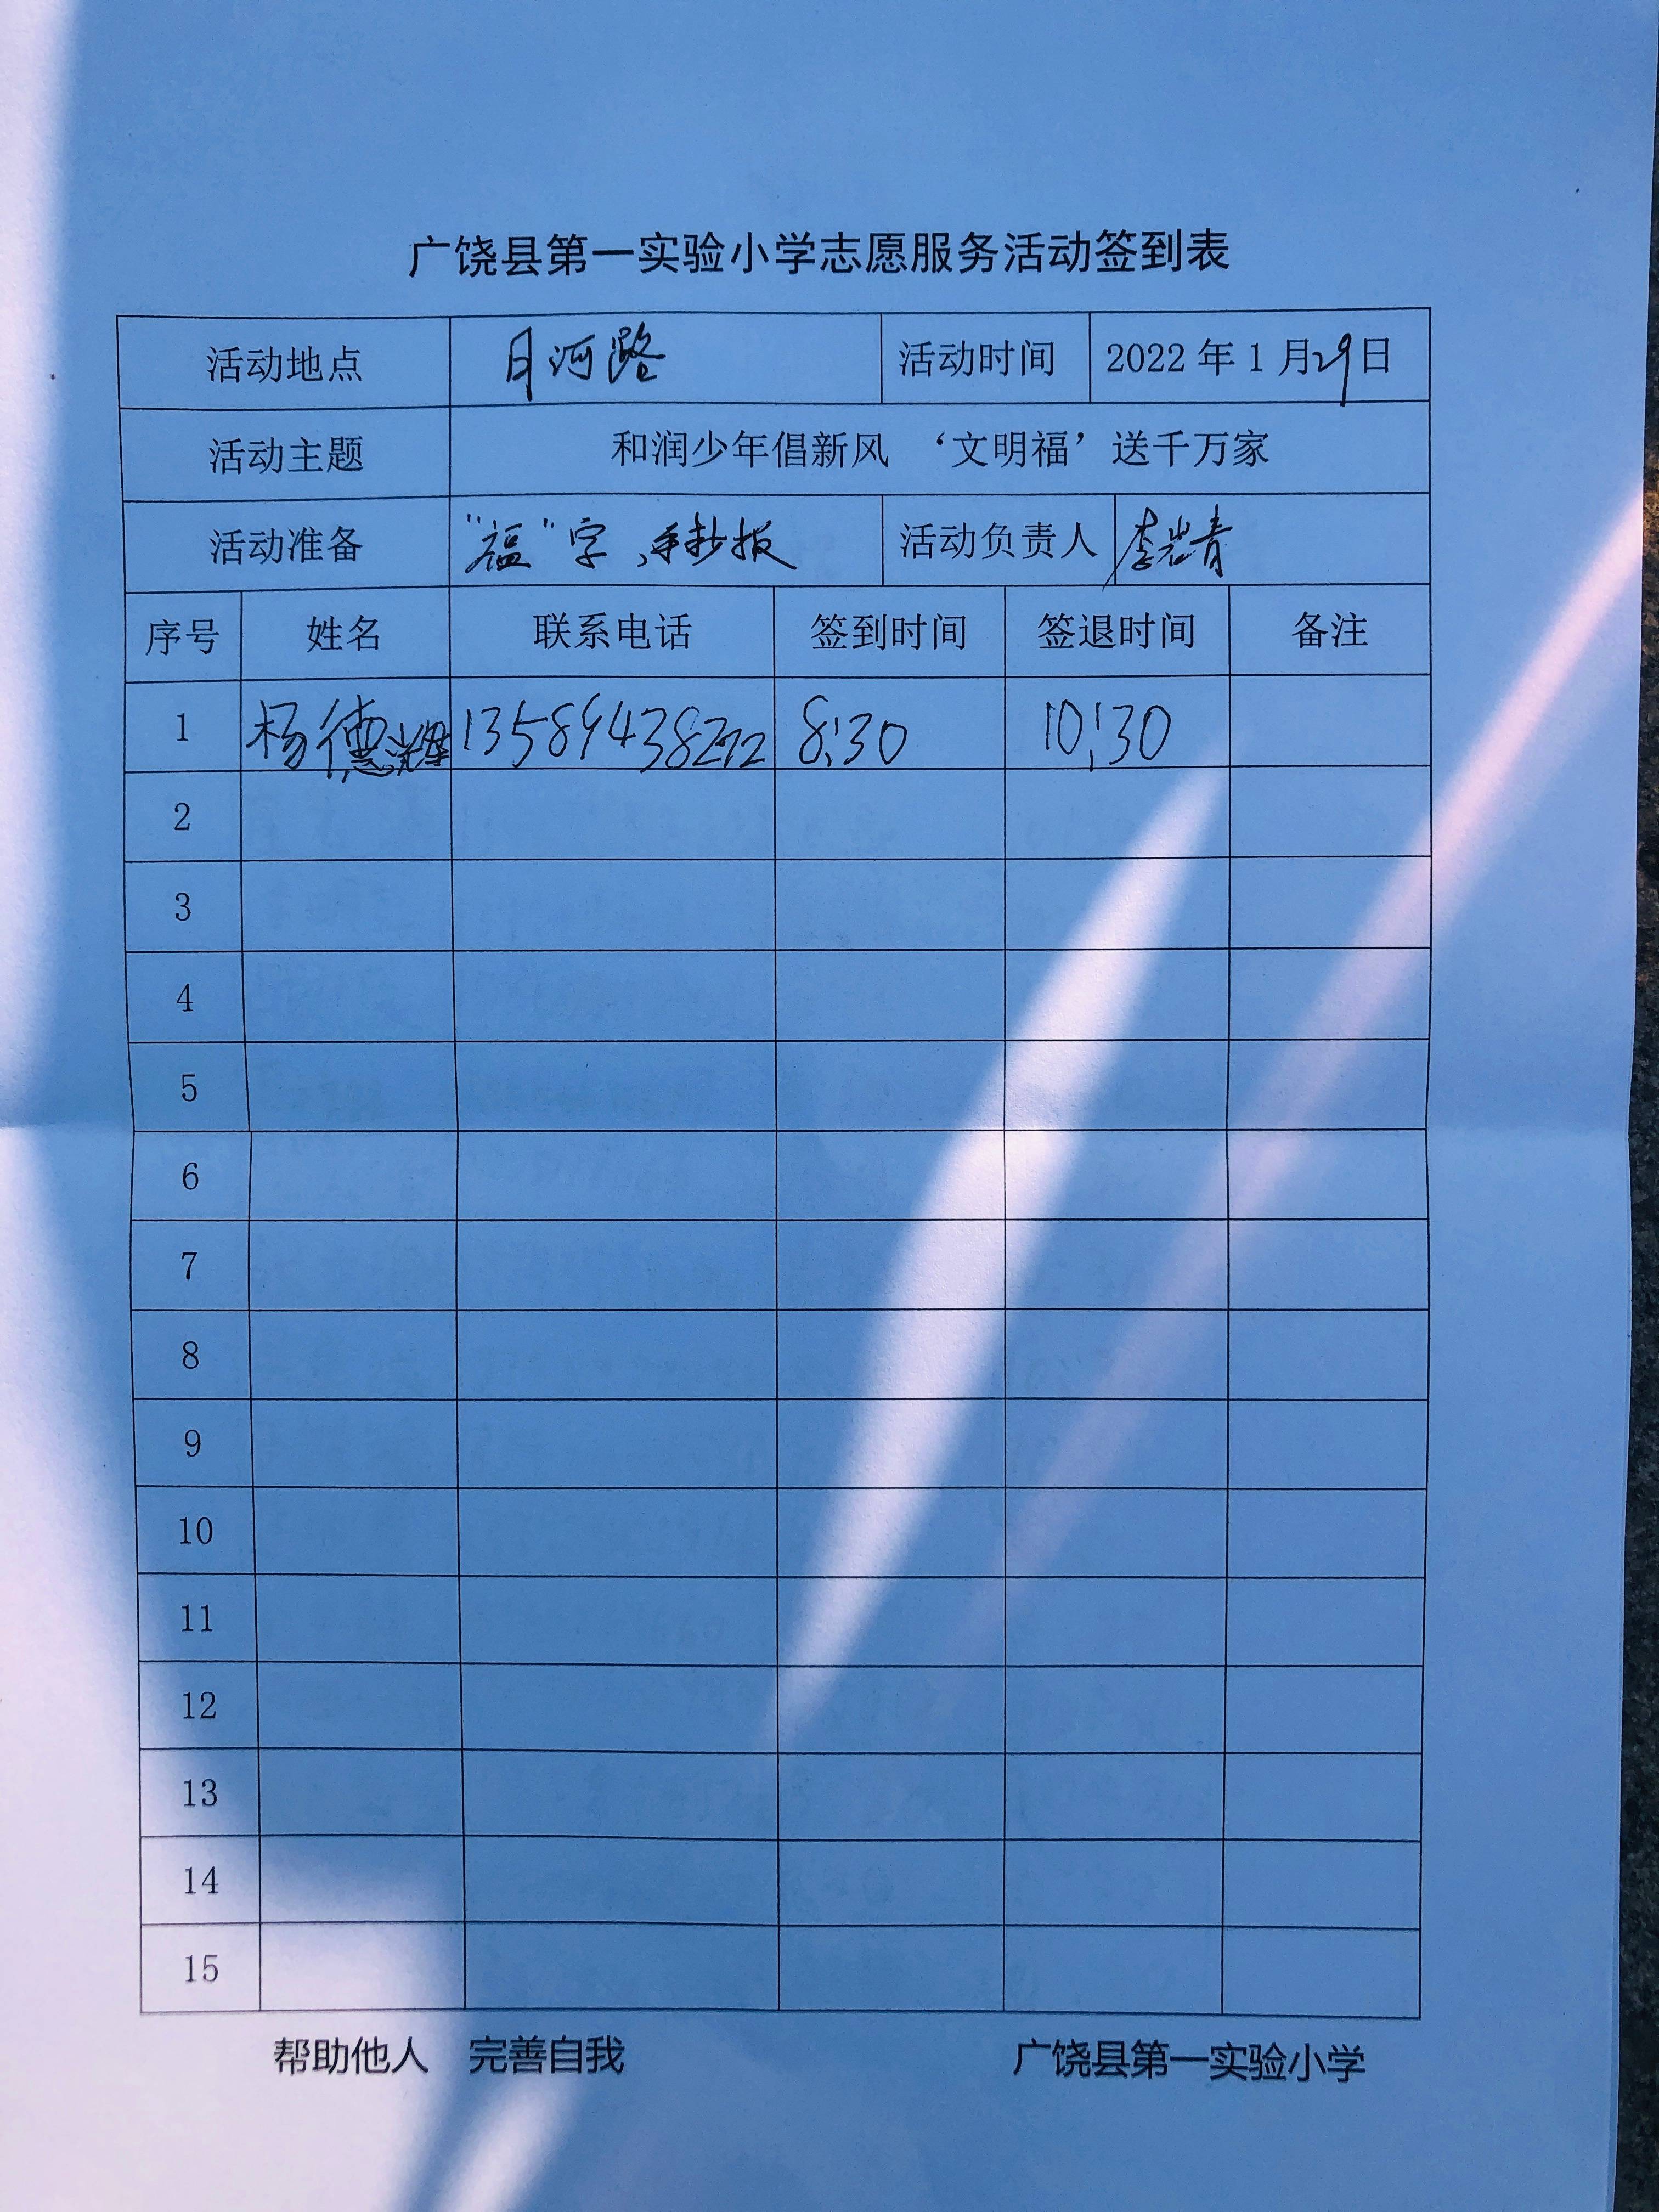 广饶县第一实验小学志愿服务活动签到表
活动地点 月河路 活动时间 2022年1月29日
活动主题 和润少年倡新风 ‘文明福’送千万家
活动准备 “福”字、手抄报 活动负责人 李岩青
序号 姓名 联系电话 签到时间 签退时间 备注
1 杨德辉 8:30 10:30
2
3
4
5
6
7
8
9
10
11
12
13
14
15
帮助他人 完善自我 广饶县第一实验小学